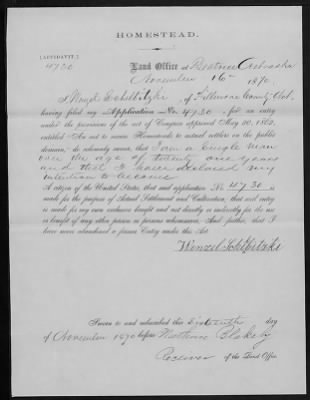 HOMESTEAD.
[AFFIDAVIT.]
4730
Land Office at Beatrice Nebraska
November 16th 1870.
I, Wenzel Schllitzki, of Fillmore County Neb.
having filed my Application No. 4730 for an entry
under the provisions of the act of Congress approved May 20, 1862,
entitled "An act to secure Homesteads to actual settlers on the public
domain," do solemnly swear, that I am a single man
over the age of twenty one years
and that I have declared my
intention to become
A citizen of the United States, that said application No. 4730 is
made for the purpose of Actual Settlement and Cultivation, that said entry
is made for my own exclusive benefit and not directly or indirectly for the use
or benefit of any other person or persons whomsoever. And further, that I
have never abandoned a prior Entry under this Act
Wenzel
Sworn to and subscribed this Sixteenth day
of November 1870 before Nathan Blakely
Receiver of the Land Office.